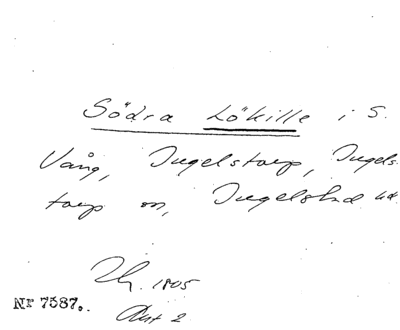 Södra Lökille i S.
Vång, Ingelstorp, Ingels-
torp sn, Ingelstad hd.
1805
Akt 2
Nr 7587.